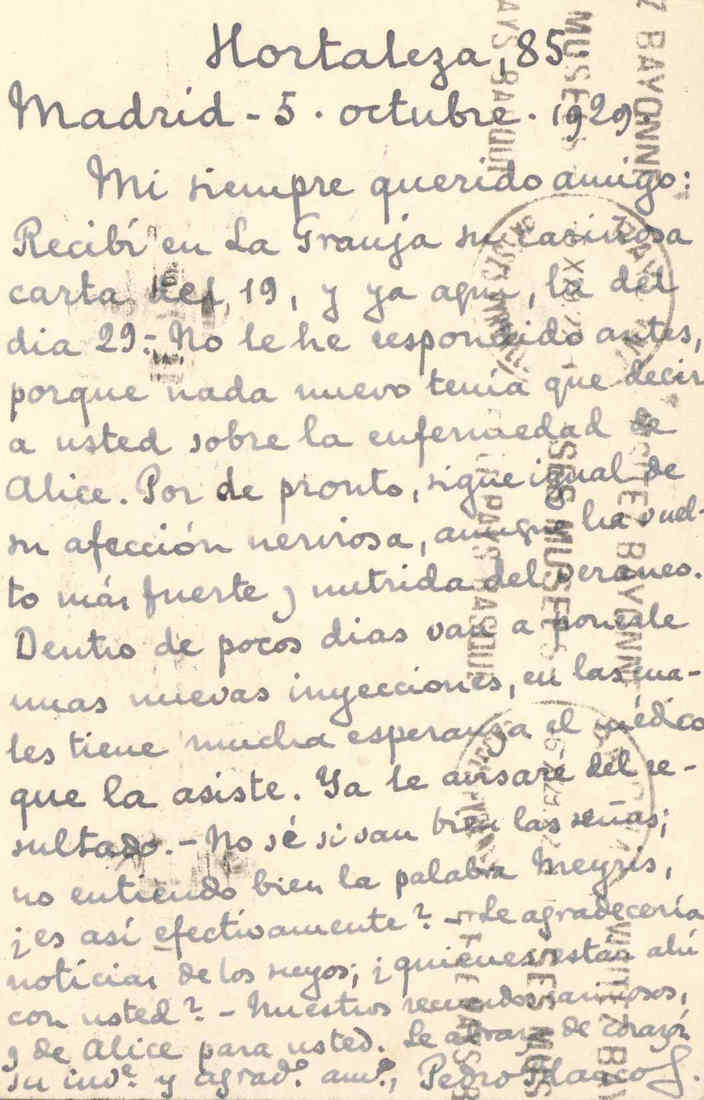 Hortaleza, 85
Madrid - 5 · octubre · 1929
Mi siempre querido amigo:
Recibí en La Granja su cariñosa
carta del 19, y ya aquí, la del
dia 29.- No le he respondido antes,
porque nada nuevo tenía que decir
a usted sobre la enfermedad de
Alice. Por de pronto, sigue igual de
su afección nerviosa, aunque ha vuel-
to más fuerte y nutrida del veraneo.
Dentro de pocos dias van a ponerle
unas nuevas inyecciones, en las cua-
les tiene mucha esperanza el médico
que la asiste. Ya le avisaré del re-
sultado. - No sé si van bien las señas;
no entiendo bien la palabra Meyris,
¿es así efectivamente? - Le agradecería
noticias de los suyos; ¿quienes estan ahí
con usted? - Nuestros recuerdos cariñosos,
y de Alice para usted. Le abraza de corazón
su invo. y agrado. amo., Pedro Blanco
VISITEZ BAYONNE
SES MUSEES
LE PAYS BASQUE